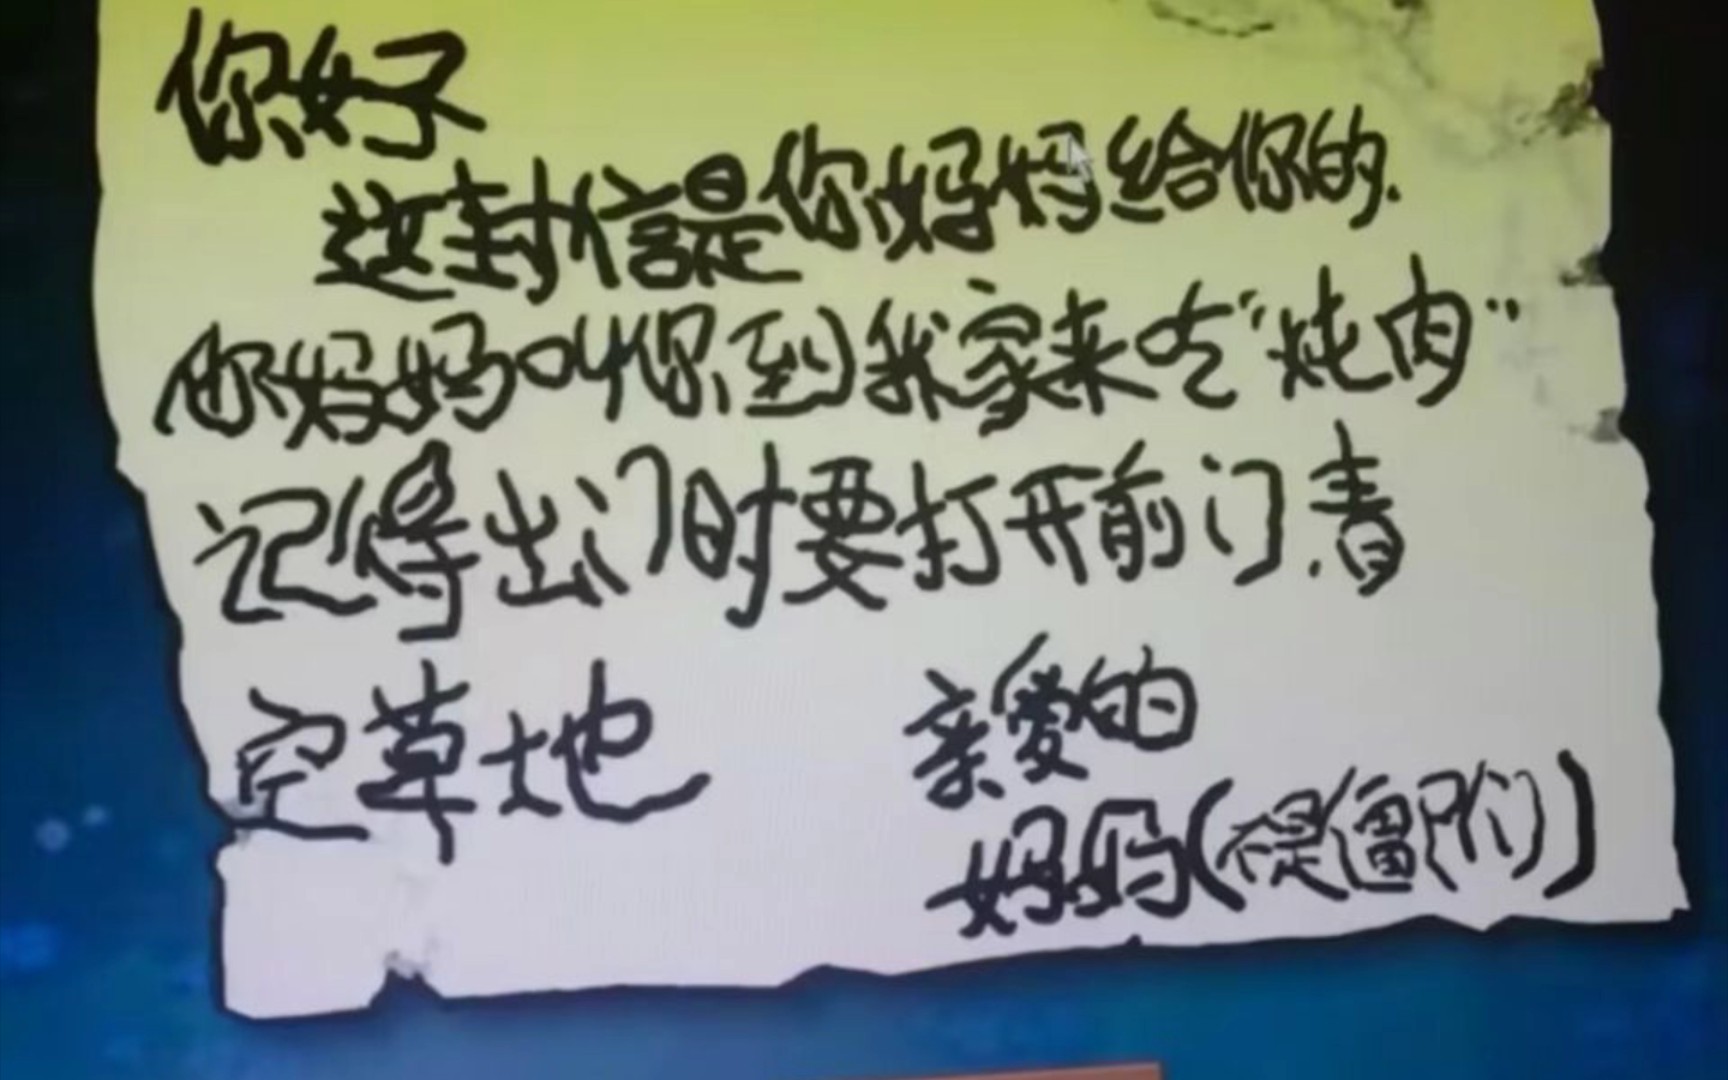 你好
这封信是你妈妈给你的.
你妈妈叫你到我家来吃“炖肉”
记得出门时要打开前门.青
空草地
亲爱的
妈妈(不是僵尸们)